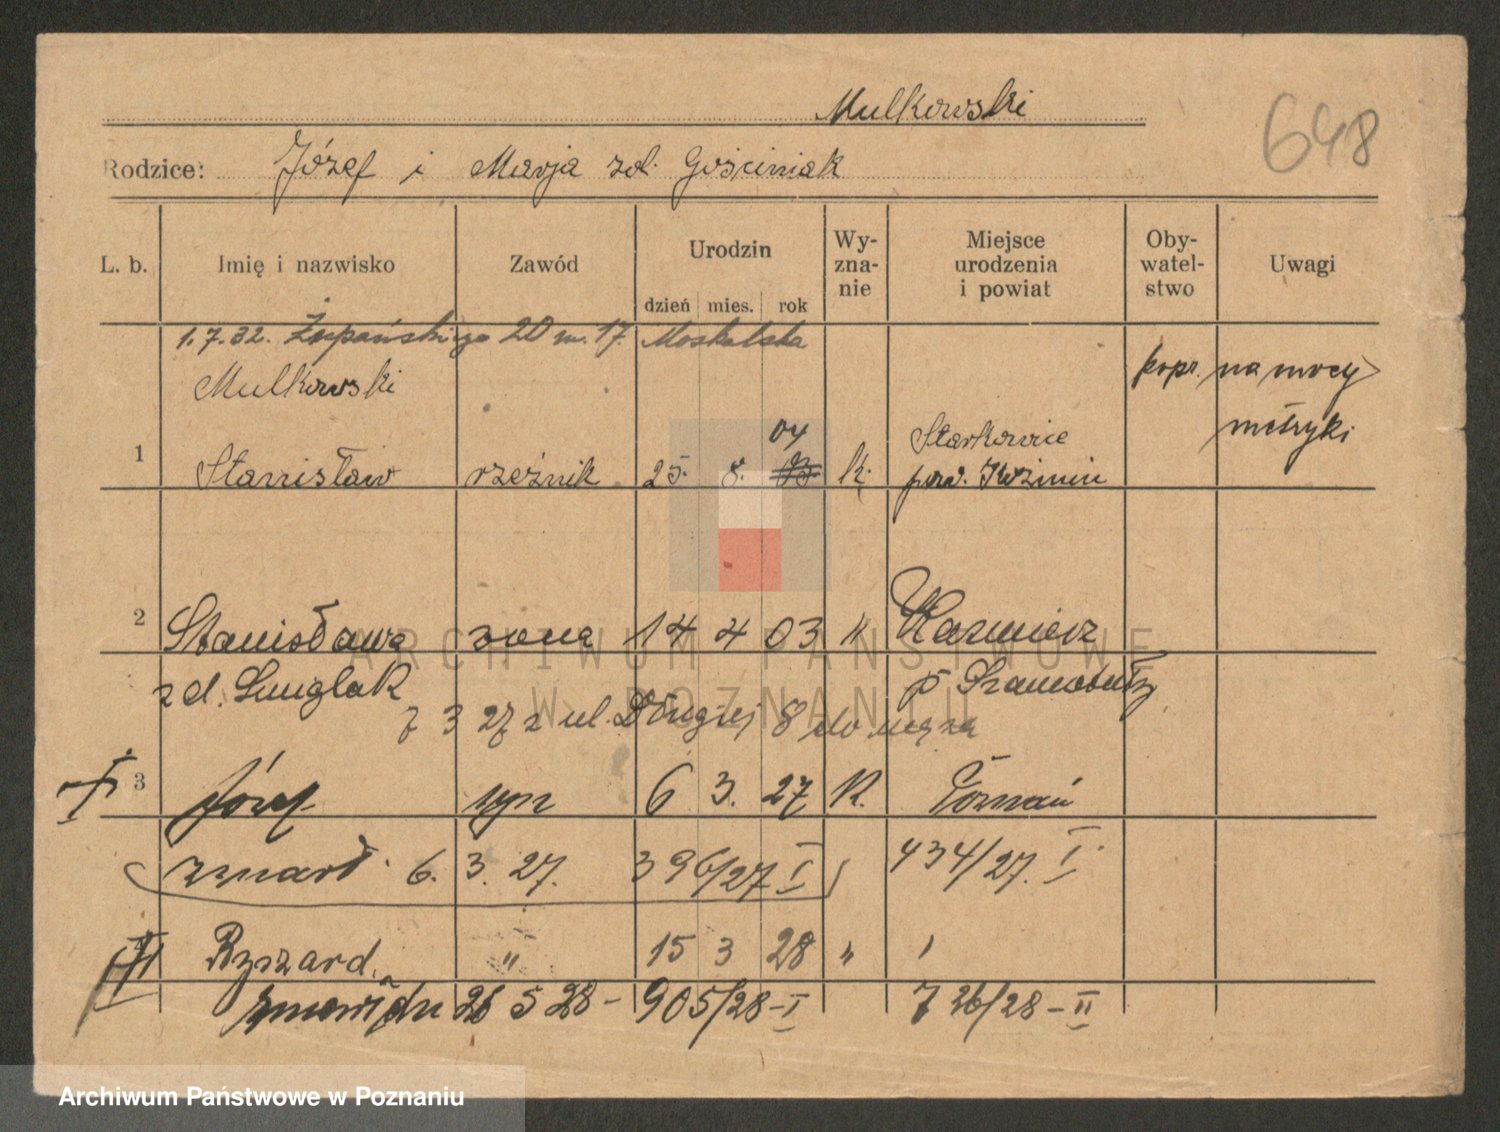 Mulkowski
648
Rodzice: Józef i Marja zd. Gościniak
L. b. Imię i nazwisko Zawód Urodzin dzień mies. rok Wyznanie Miejsce urodzenia i powiat Obywatelstwo Uwagi
1.7.32. Żupańskiego 20 m. 17. Moskalska
Mulkowski popr. na mocy
04 Starkowice metryki
1 Stanisław rzeźnik 25. 8. k. pow. Koźmin
2 Stanisława żona 14 4 03 k Kazmierz
zd. Smuglak p Szamotuły
7 3 27 z ul. Długiej 8 do męża
3 Józef syn 6 3. 27 k. Poznań
zmarł 6. 3. 27. 396/27 I 434/27. I.
Ryszard " 15 3 28 "
zmarł dn 26 5 28 - 905/28-I 726/28-II
ARCHIWUM PAŃSTWOWE
W POZNANIU
Archiwum Państwowe w Poznaniu